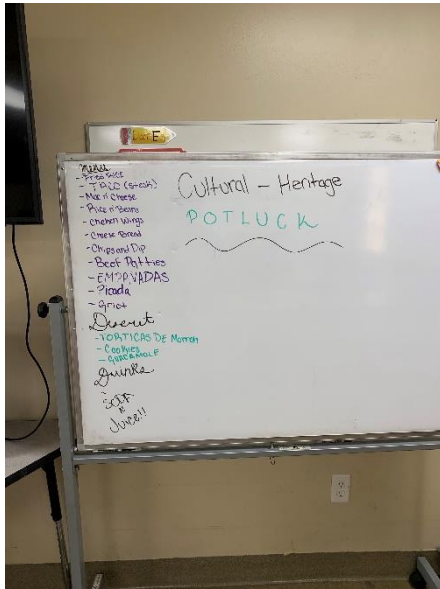 Menu
- Fried Rice
- TACO (steak)
- Mac n' Cheese
- Rice n' Beans
- Chicken Wings
- Cheese Bread
- Chips and Dip
- Beef Patties
- EMPANADAS
- Picada
- Griot
Desert
- TORTICAS DE Morron
- Cookies
- GUACAMOLE
Drinks
- SODA
&
Juice!!
Cultural - Heritage
POTLUCK